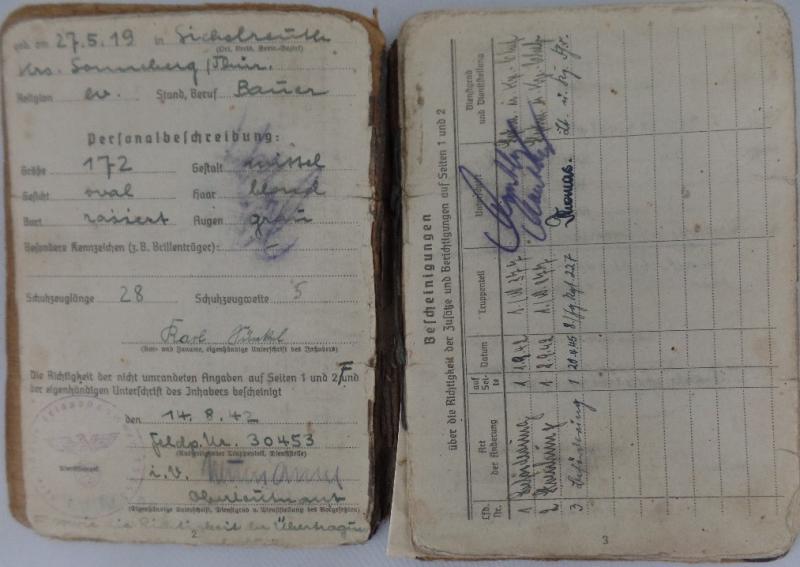 geb. am 27.5.19 in Sichelreuth
(Ort, Kreis, Verw.-Bezirk)
Krs. Sonneberg/Thür.
Religion ev. Stand, Beruf Bauer
Personalbeschreibung:
Größe 172 Gestalt mittel
Gesicht oval Haar blond
Bart rasiert Augen grau
Besondere Kennzeichen (z.B. Brillenträger): –
Schuhzeuglänge 28 Schuhzeugweite 5
Karl
(Vor- und Zuname, eigenhändige Unterschrift des Inhabers)
Die Richtigkeit der nicht umrandeten Angaben auf Seiten 1 und 2 und
der eigenhändigen Unterschrift des Inhabers bescheinigt
den 14.8.42
Feldp. Nr. 30453
(Ausfertigender Truppenteil, Dienststelle)
Dienststempel
i.V.
Oberleutnant
(Eigenhändige Unterschrift, Dienstgrad u. Dienststellung des Vorgesetzten)
sowie die Richtigkeit der Übertragung
2
Bescheinigungen
über die Richtigkeit der Zusätze und Berichtigungen auf Seiten 1 und 2
Lfd. Nr. Art der Änderung auf Seite Datum Truppenteil Unterschrift Dienstgrad und Dienststellung
1 Beförderung 1 1.9.42
2 1 1.9.42
3 Beförderung 1 29.4.45 Thomas. Lt. u. Kp. Fhr.
3